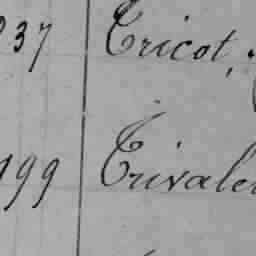 37 Tricot,
199 Trivale